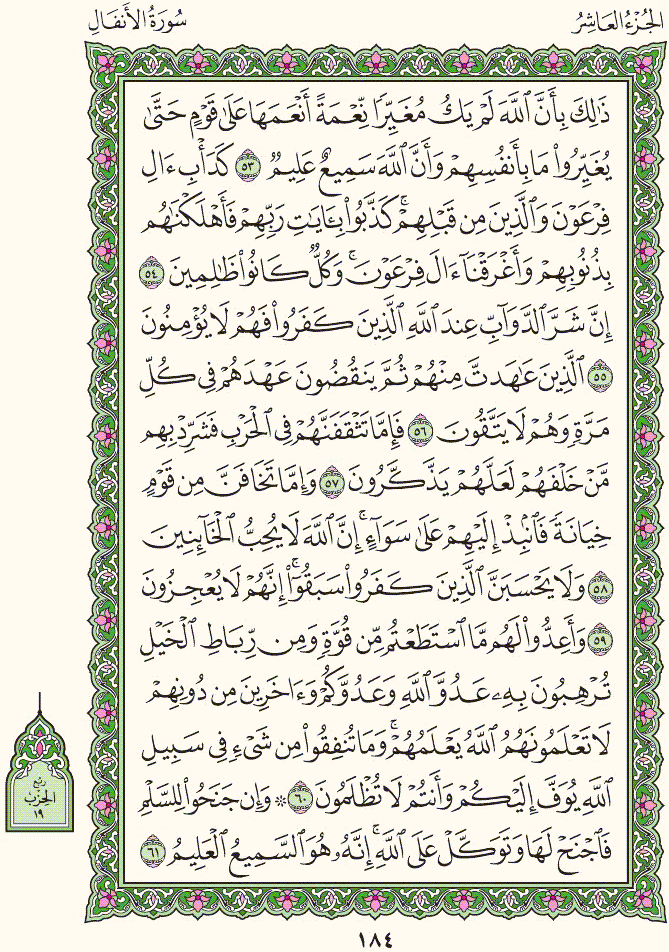 الجُزْءُ العَاشِرُ
سُورَةُ الأَنفَالِ
ذَٰلِكَ بِأَنَّ ٱللَّهَ لَمْ يَكُ مُغَيِّرًا نِّعْمَةً أَنْعَمَهَا عَلَىٰ قَوْمٍ حَتَّىٰ
يُغَيِّرُوا۟ مَا بِأَنفُسِهِمْ وَأَنَّ ٱللَّهَ سَمِيعٌ عَلِيمٌ ٥٣ كَدَأْبِ ءَالِ
فِرْعَوْنَ وَٱلَّذِينَ مِن قَبْلِهِمْ ۚ كَذَّبُوا۟ بِـَٔايَـٰتِ رَبِّهِمْ فَأَهْلَكْنَـٰهُم
بِذُنُوبِهِمْ وَأَغْرَقْنَآ ءَالَ فِرْعَوْنَ ۚ وَكُلٌّ كَانُوا۟ ظَـٰلِمِينَ ٥٤
إِنَّ شَرَّ ٱلدَّوَآبِّ عِندَ ٱللَّهِ ٱلَّذِينَ كَفَرُوا۟ فَهُمْ لَا يُؤْمِنُونَ
٥٥ ٱلَّذِينَ عَـٰهَدتَّ مِنْهُمْ ثُمَّ يَنقُضُونَ عَهْدَهُمْ فِى كُلِّ
مَرَّةٍ وَهُمْ لَا يَتَّقُونَ ٥٦ فَإِمَّا تَثْقَفَنَّهُمْ فِى ٱلْحَرْبِ فَشَرِّدْ بِهِم
مَّنْ خَلْفَهُمْ لَعَلَّهُمْ يَذَّكَّرُونَ ٥٧ وَإِمَّا تَخَافَنَّ مِن قَوْمٍ
خِيَانَةً فَٱنۢبِذْ إِلَيْهِمْ عَلَىٰ سَوَآءٍ ۚ إِنَّ ٱللَّهَ لَا يُحِبُّ ٱلْخَآئِنِينَ
٥٨ وَلَا يَحْسَبَنَّ ٱلَّذِينَ كَفَرُوا۟ سَبَقُوٓا۟ ۚ إِنَّهُمْ لَا يُعْجِزُونَ
٥٩ وَأَعِدُّوا۟ لَهُم مَّا ٱسْتَطَعْتُم مِّن قُوَّةٍ وَمِن رِّبَاطِ ٱلْخَيْلِ
تُرْهِبُونَ بِهِۦ عَدُوَّ ٱللَّهِ وَعَدُوَّكُمْ وَءَاخَرِينَ مِن دُونِهِمْ
لَا تَعْلَمُونَهُمُ ٱللَّهُ يَعْلَمُهُمْ ۚ وَمَا تُنفِقُوا۟ مِن شَىْءٍ فِى سَبِيلِ
ٱللَّهِ يُوَفَّ إِلَيْكُمْ وَأَنتُمْ لَا تُظْلَمُونَ ٦٠ ۞ وَإِن جَنَحُوا۟ لِلسَّلْمِ
فَٱجْنَحْ لَهَا وَتَوَكَّلْ عَلَى ٱللَّهِ ۚ إِنَّهُۥ هُوَ ٱلسَّمِيعُ ٱلْعَلِيمُ ٦١
ربع
الحزب
١٩
١٨٤